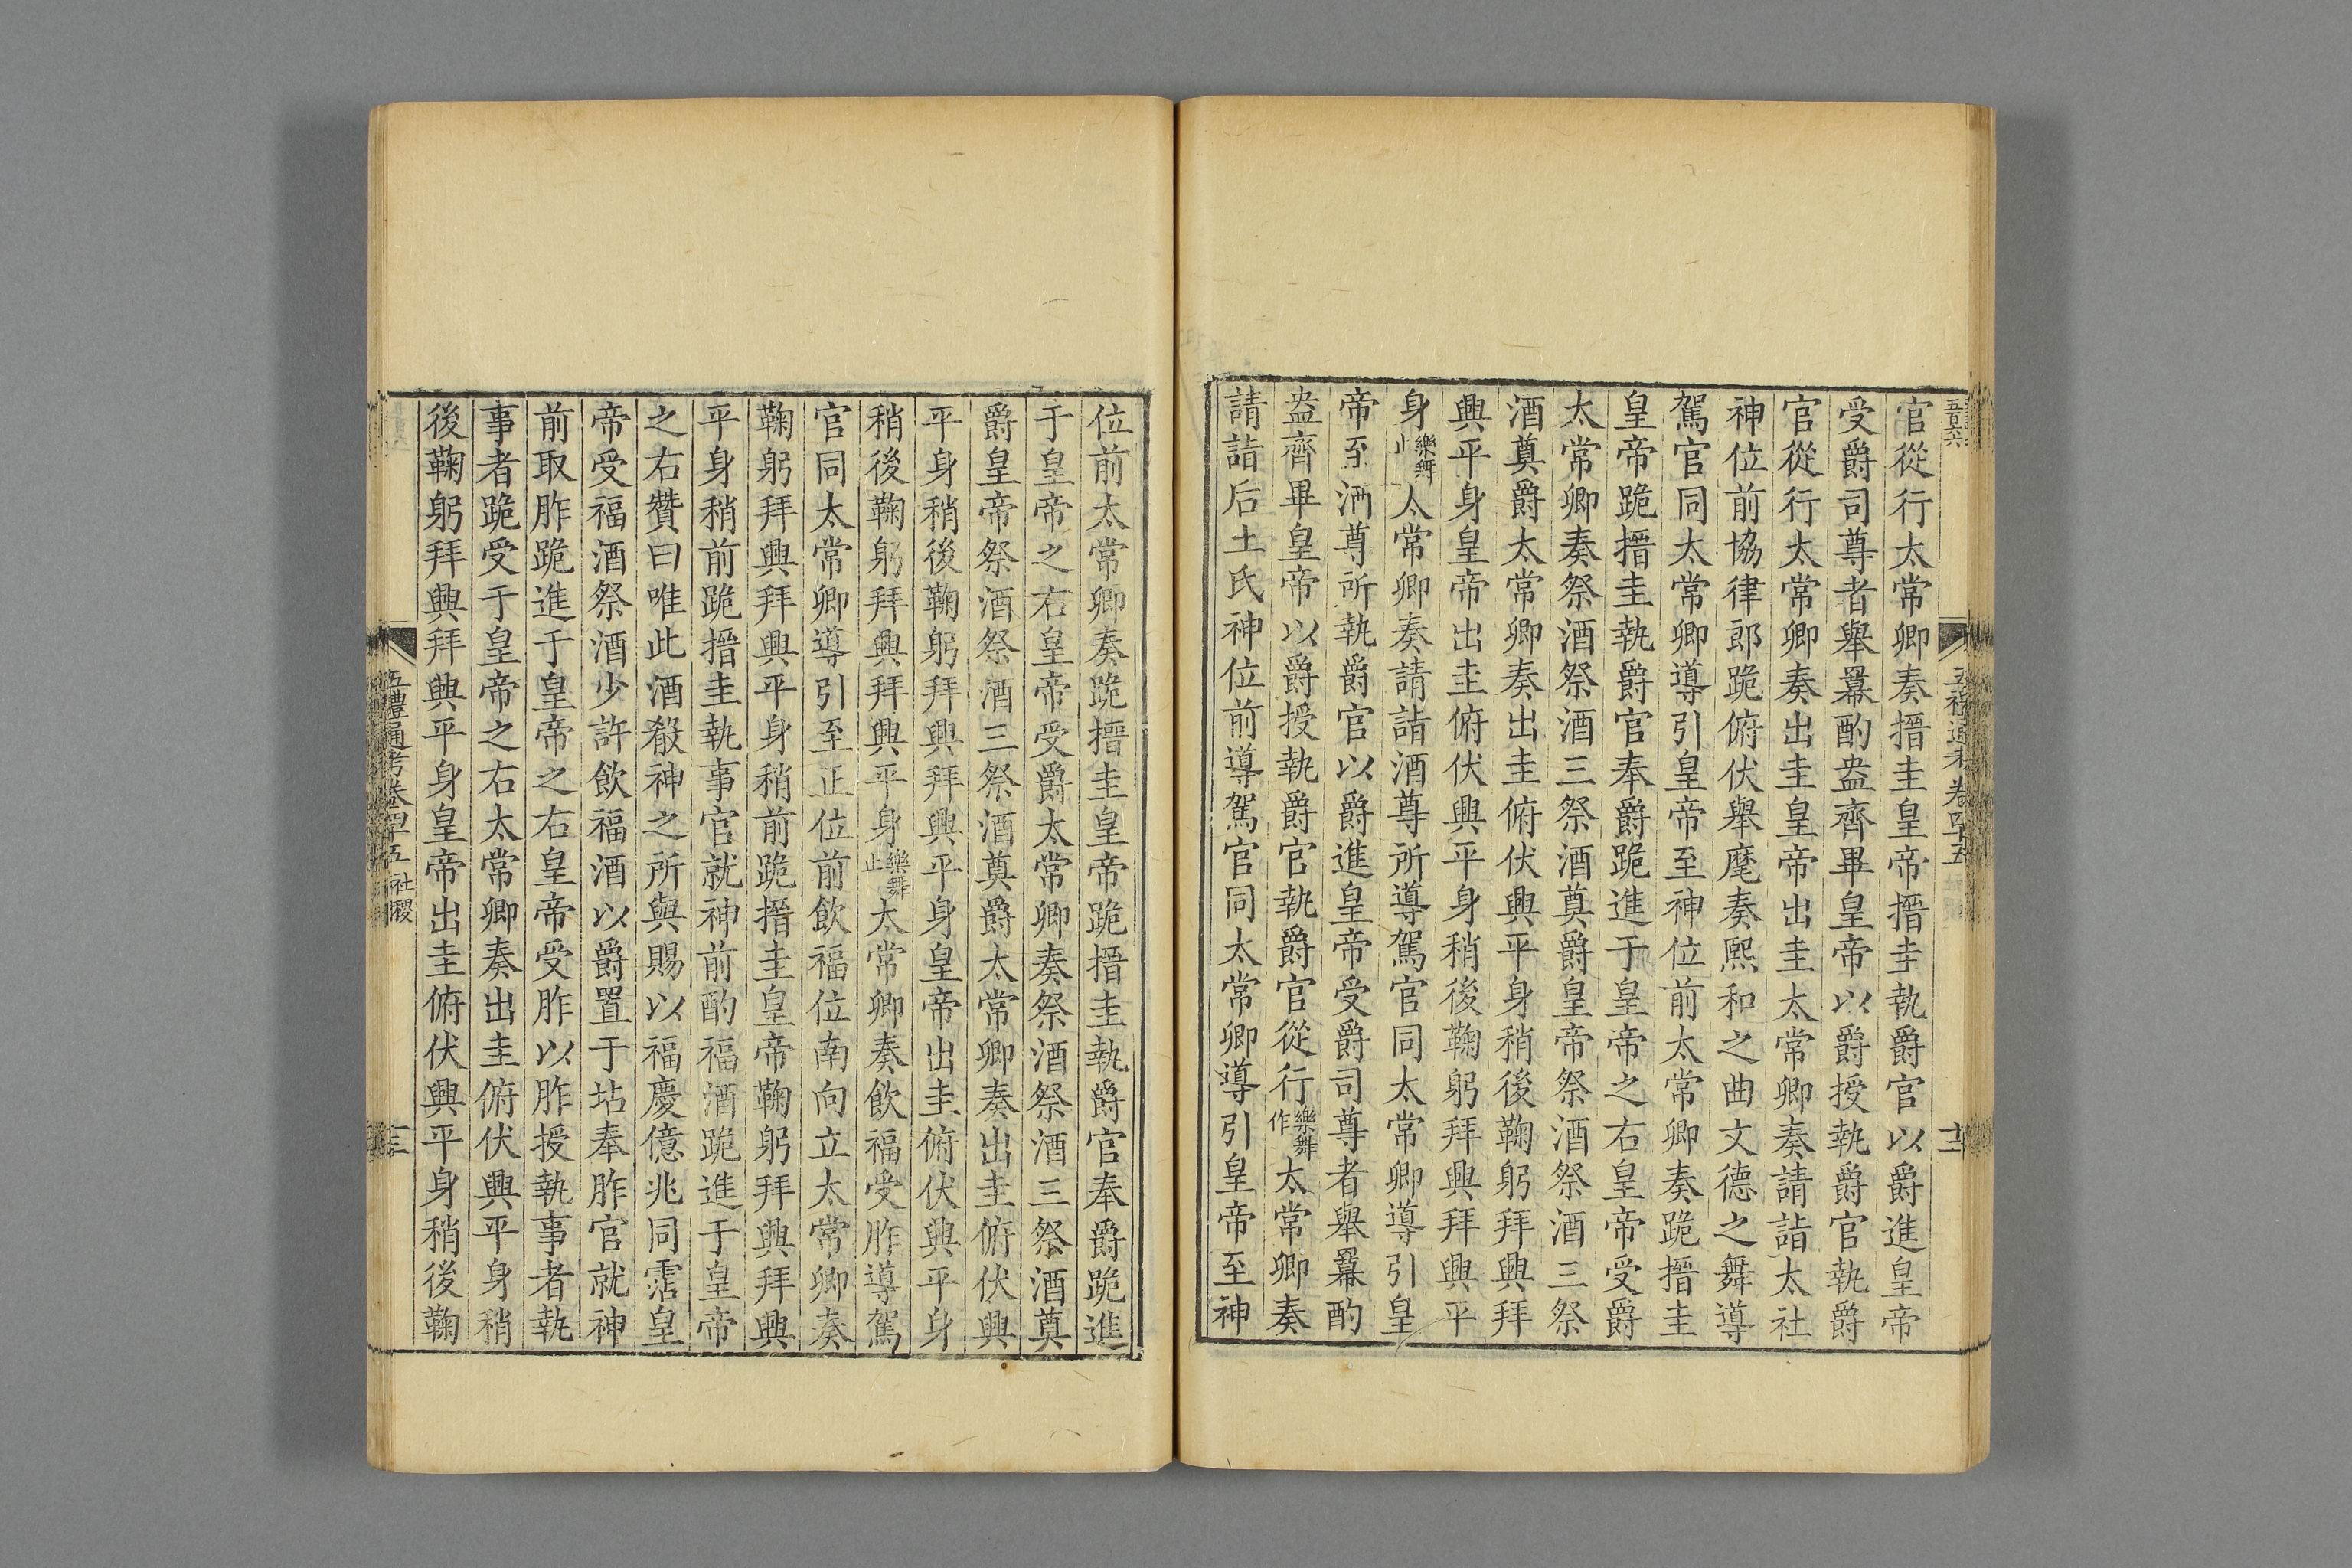 五禮通考卷四十五
官從行太常卿奏搢圭皇帝搢圭執爵官以爵進皇帝
受爵司尊者舉羃酌盎齊畢皇帝以爵授執爵官執爵
官從行太常卿奏出圭皇帝出圭太常卿奏請詣太社
神位前協律郎跪俯伏舉麾奏熙和之曲文德之舞導
駕官同太常卿導引皇帝至神位前太常卿奏跪搢圭
皇帝跪搢圭執爵官奉爵跪進于皇帝之右皇帝受爵
太常卿奏祭酒祭酒三祭酒奠爵皇帝祭酒祭酒三祭
酒奠爵太常卿奏出圭俯伏興平身稍後鞠躬拜興拜
興平身皇帝出圭俯伏興平身稍後鞠躬拜興拜興平
身樂舞止太常卿奏請詣酒尊所導駕官同太常卿導引皇
帝至酒尊所執爵官以爵進皇帝受爵司尊者舉羃酌
盎齊畢皇帝以爵授執爵官執爵官從行樂舞作太常卿奏
請詣后土氏神位前導駕官同太常卿導引皇帝至神
位前太常卿奏跪搢圭皇帝跪搢圭執爵官奉爵跪進
于皇帝之右皇帝受爵太常卿奏祭酒祭酒三祭酒奠
爵皇帝祭酒祭酒三祭酒奠爵太常卿奏出圭俯伏興
平身稍後鞠躬拜興拜興平身皇帝出圭俯伏興平身
稍後鞠躬拜興拜興平身樂舞止太常卿奏飲福受胙導駕
官同太常卿導引至正位前飲福位南向立太常卿奏
鞠躬拜興拜興平身稍前跪搢圭皇帝鞠躬拜興拜興
平身稍前跪搢圭執事官就神前酌福酒跪進于皇帝
之右贊曰唯此酒殽神之所與賜以福慶億兆同霑皇
帝受福酒祭酒少許飲福酒以爵置于坫奉胙官就神
前取胙跪進于皇帝之右皇帝受胙以胙授執事者執
事者跪受于皇帝之右太常卿奏出圭俯伏興平身稍
後鞠躬拜興拜興平身皇帝出圭俯伏興平身稍後鞠
五禮通考卷四十五 社稷